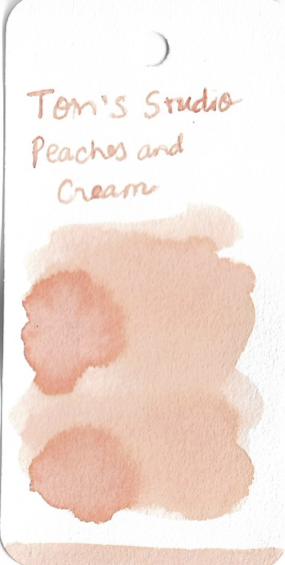 Tom's Studio
Peaches and
Cream